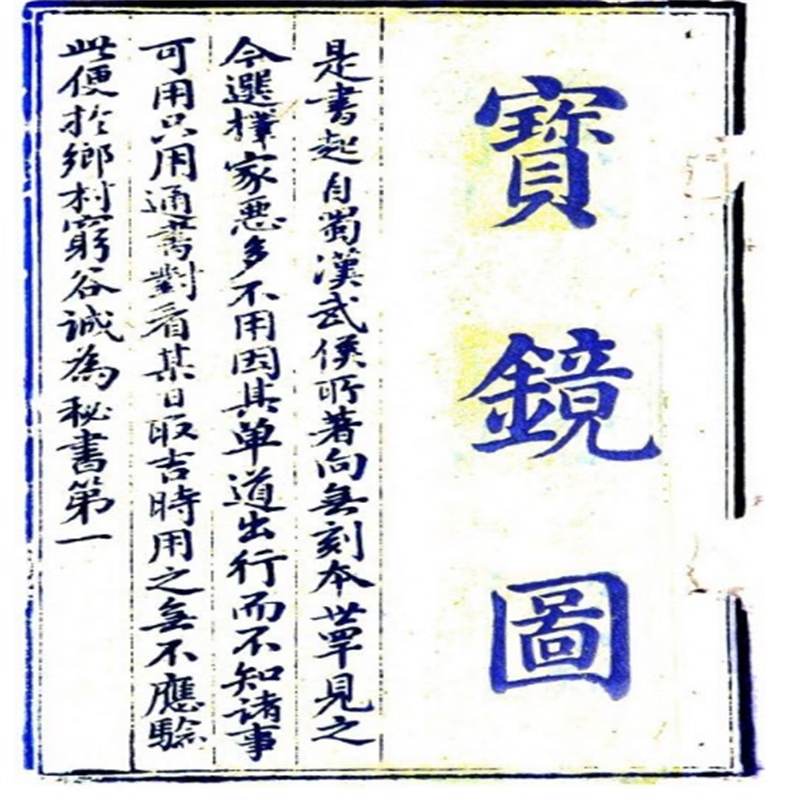 寶鏡圖
是書起自蜀漢武侯所著向無刻本世罕見之
今選擇家悉多不用因其单道出行而不知諸事
可用只用通書對看某日取吉時用之無不應驗
此便於鄉村窮谷誠為秘書第一